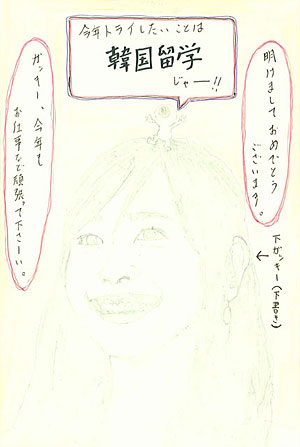 今年トライしたいことは
韓国留学
じゃー!!
明けましておめでとう
ございます。
ガッキー、今年も
お仕事など頑張って下さーい。
下ガッキー(下書き)
←